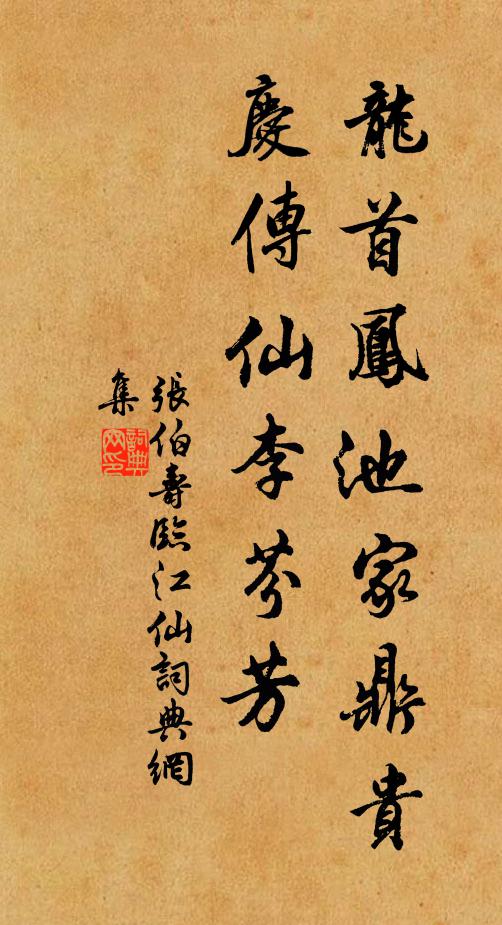 龍首鳳池家鼎貴
慶傳仙李芬芳
張伯壽臨江仙詞典網
集
詞典網印